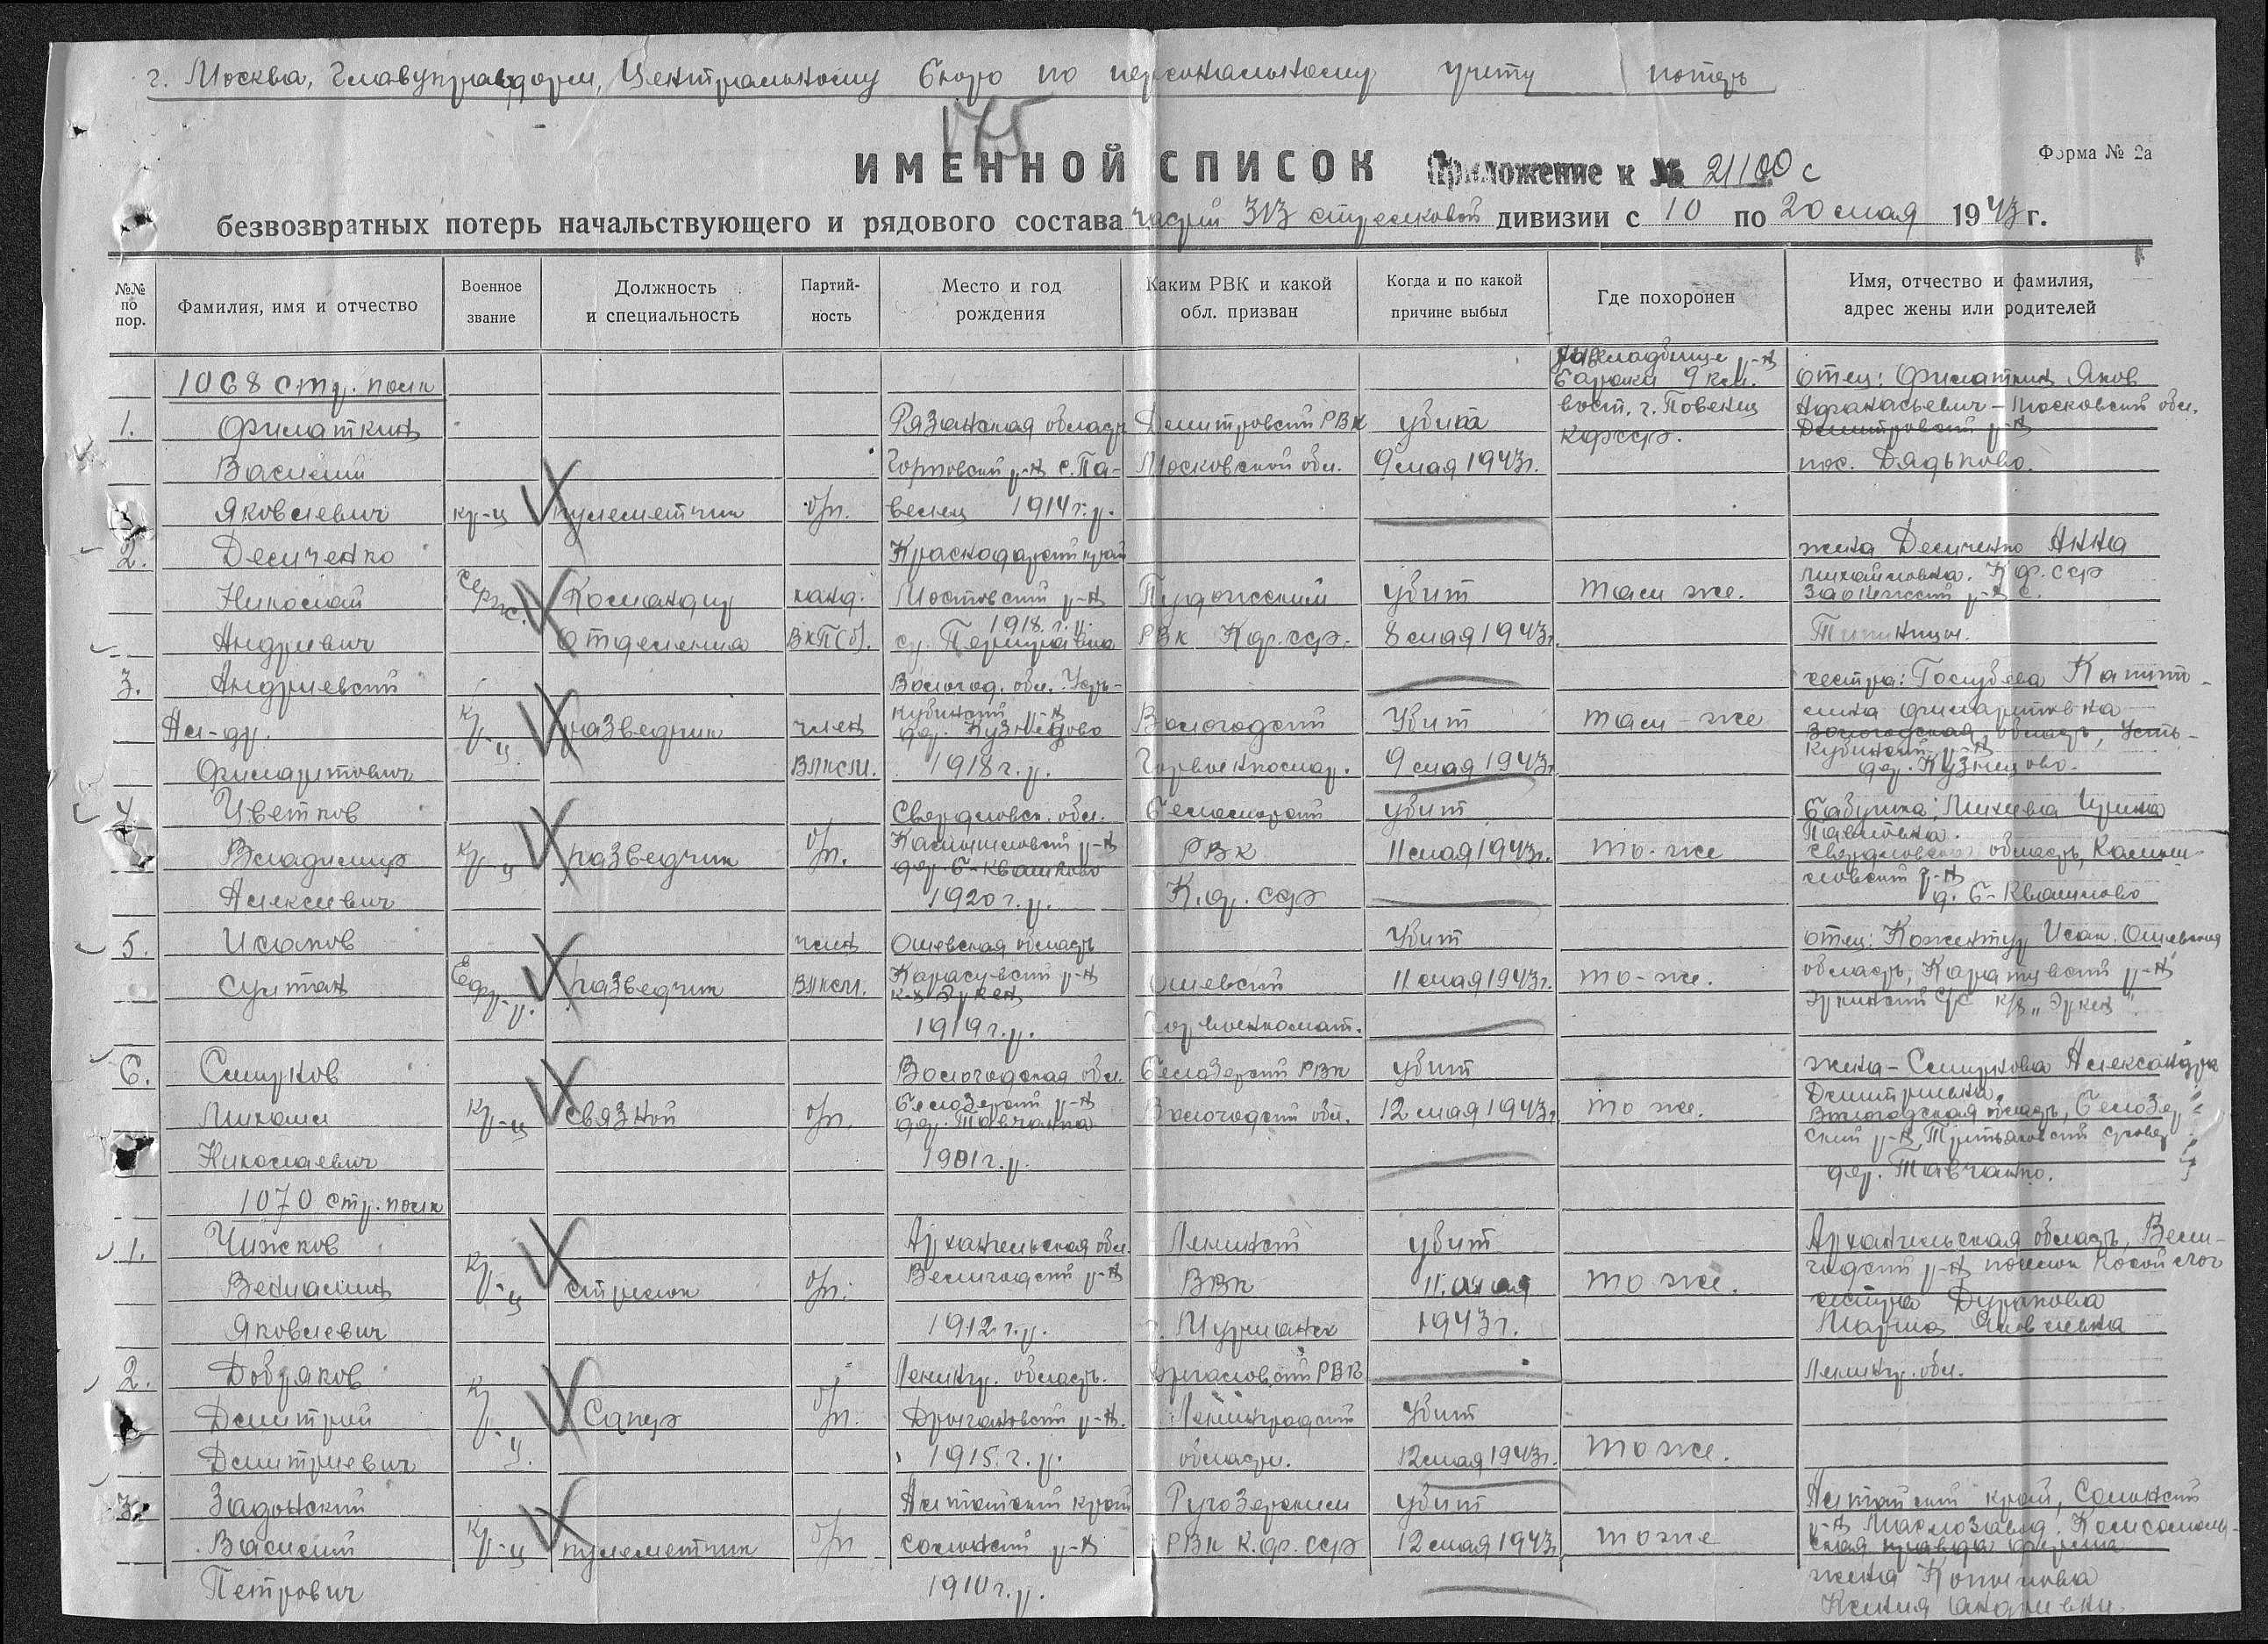 г. Москва, Главупраформ, Центральному бюро по персональному учету потерь
175
ИМЕННОЙ СПИСОК Приложение к № 21100с
Форма № 2а
безвозвратных потерь начальствующего и рядового состава частей 313 стрелковой дивизии с 10 по 20 мая 1943 г.
№№ по пор. | Фамилия, имя и отчество | Военное звание | Должность и специальность | Партий-ность | Место и год рождения | Каким РВК и какой обл. призван | Когда и по какой причине выбыл | Где похоронен | Имя, отчество и фамилия, адрес жены или родителей
1068 стр. полк
1. Филаткин Василий Яковлевич
кр-ц
пулеметчик
б/п.
Рязанская область
Горловский р-н с. Па-
велец 1914 г.р.
Дмитровский РВК
Московской обл.
убит
9 мая 1943г.
кладбище р-н
барака 9 км.
вост. г. Повенец
КФССР.
отец: Филаткин Яков
Афанасьевич – Московской обл.
Дмитровский р-н
пос. Дядьково.
2. Демченко Николай Андреевич
серж.
Командир
отделения
канд.
ВКП(б).
Краснодарский край
Мостовский р-н
1918 г.р.
РВК К.ф.сср.
убит
8 мая 1943г.
там же.
жена Демченко Анна
Михайловна. К.ф.сср
Заонежский р-н с.
3. Андриевский
Ал-др.
Филаретович
кр-ц
разведчик
член
ВЛКСМ.
Вологод. обл. Усть-
кубинский р-н
дер. Кузнецово
1918 г.р.
Вологодский
Горвоенкомат.
Убит
9 мая 1943г.
там-же
сестра: Голубева Капито-
лина Филаретовна
Вологодская область, Усть-
Кубинский р-н
дер. Кузнецово.
4. Цветков Владимир Алексеевич
кр-ц
разведчик
б/п.
Свердловск. обл.
р-н
дер. Б-Квашково
1920 г.р.
Беломорский
РВК
К.ф.сср
убит
11 мая 1943г.
то-же
бабушка: Михеева Ирина
Павловна.
Свердловская область,
р-н
5. Исаков
Султан
Ефр-р.
разведчик
член
ВЛКСМ.
Ошевская область
Карасуевский р-н
к-з Эркен
1919 г.р.
Ошевский
Горвоенкомат.
Убит
11 мая 1943г.
то-же.
отец: Исак. Ошевская
область, р-н
Эркинский с/с к/з „Эркен“
6. Смирнов
Михаил
Николаевич
кр-ц
связной
б/п.
Вологодская обл.
Белозерский р-н
дер. Тавчанка
1901 г.р.
Белозерский РВК
Вологодской обл.
убит
12 мая 1943г.
то же.
жена – Смирнова Александра
Дмитриевна.
Вологодская область, Белозер-
ский р-н, совет
дер. Тавчанко.
1070 стр. полк
1. Чижков
Вениамин
Яковлевич
кр-ц
стрелок
б/п.
Архангельская обл.
р-н
1912 г.р.
Ленинский
РВК
г. Мурманск
убит
11 мая
1943г.
то же.
Архангельская область,
р-н поселок
сестра
Мария Яковлевна
2. Добряков
Дмитрий
Дмитриевич
кр-ц.
Сапер
б/п.
Ленингр. область.
р-н.
1915 г.р.
РВК
Ленинградской
области.
Убит
12 мая 1943г.
то же.
Ленингр. обл.
3. Задонский
Василий
Петрович
кр-ц
пулеметчик
б/п
Алтайский край
Солонский р-н
1910 г.р.
Ругозерским
РВК К.ф.сср
убит
12 мая 1943г.
то же
Алтайский край, Солонский
р-н Маслозавод. Комсомоль-
ская правда
жена
Ксения Андреевна.